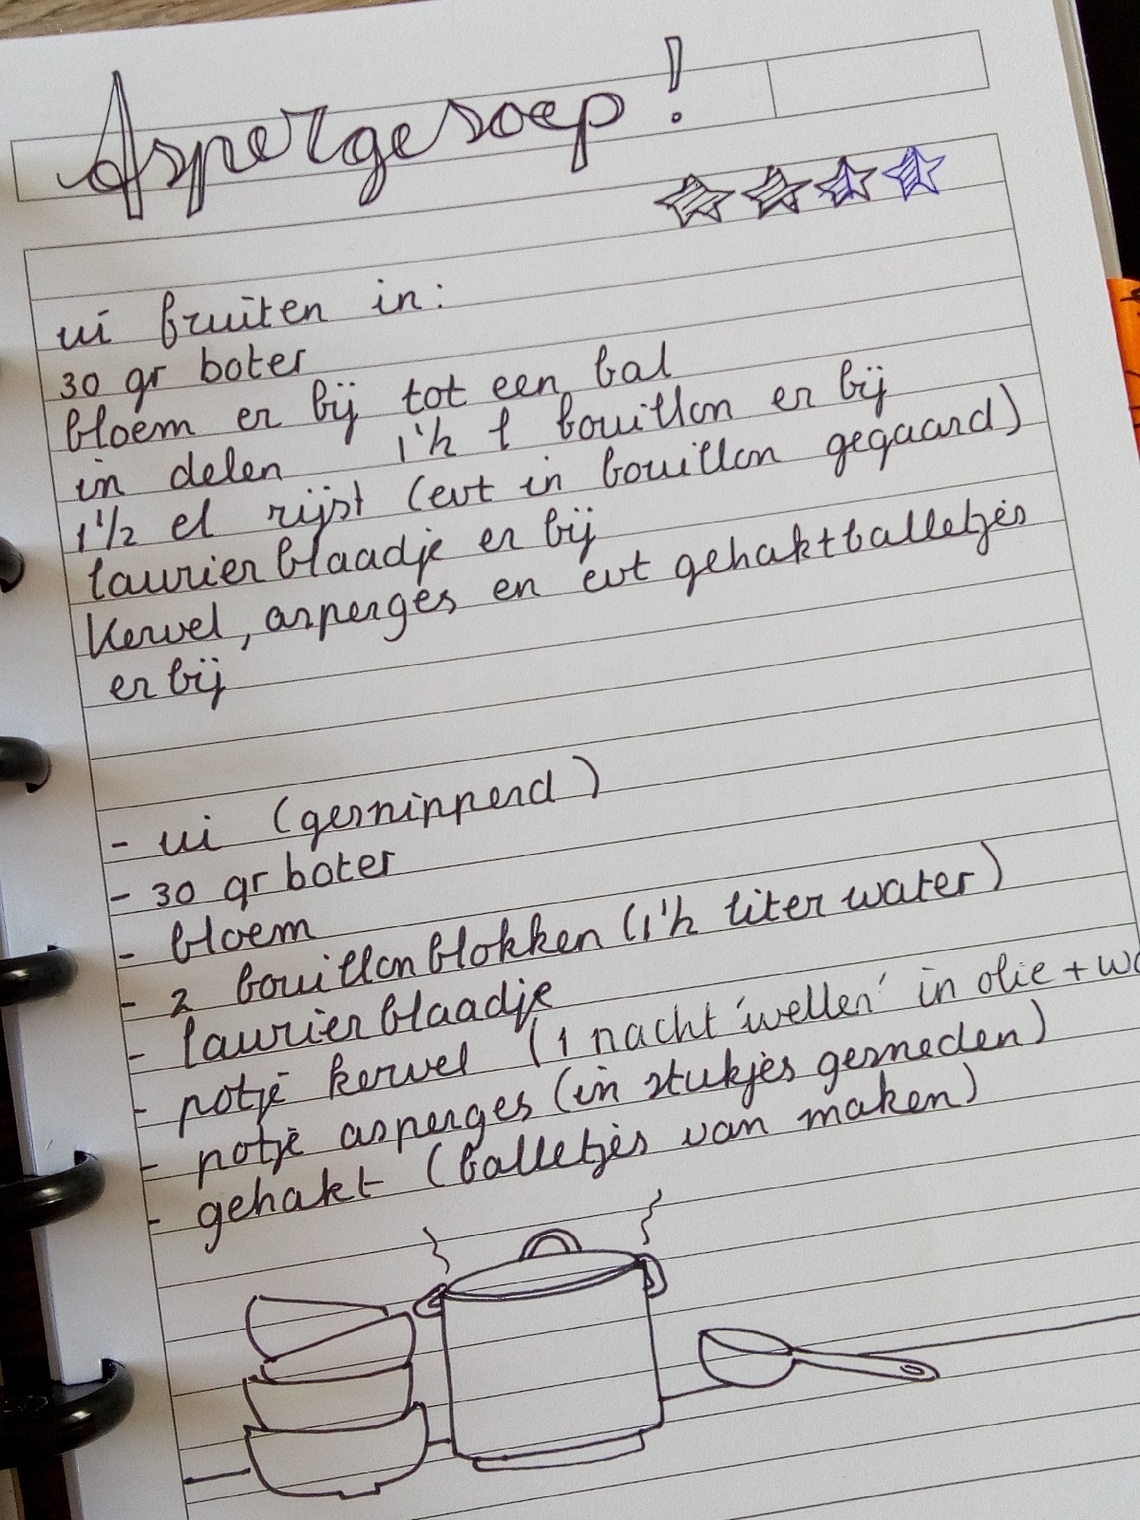 Aspergesoep!
ui fruiten in:
30 gr boter
bloem er bij tot een bal
in delen 1½ l bouillon er bij
1½ el rijst (evt in bouillon gegaard)
laurierblaadje er bij
Kervel, asperges en evt gehaktballetjes
er bij
- ui (gesnipperd)
- 30 gr boter
- bloem
- 2 bouillonblokken (1½ liter water)
- laurierblaadje
- potje kervel (1 nacht 'wellen' in olie +
- potje asperges (in stukjes gesneden)
- gehakt (balletjes van maken)